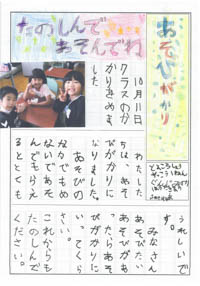 あそびがかり
たのしんで
あそんでね
10月11日
クラスのか
かりをきめま
した。
わたした
ちは、あそ
びがかりに
なりました。
あそびの
なかでもめ
ないであそ
んでもらえ
るととても
うれしいで
す。
みなさん
あそびたい
あそびがあ
ったらあそ
びがかりに
いってくだ
さい。
これからも
たのしんで
ください。